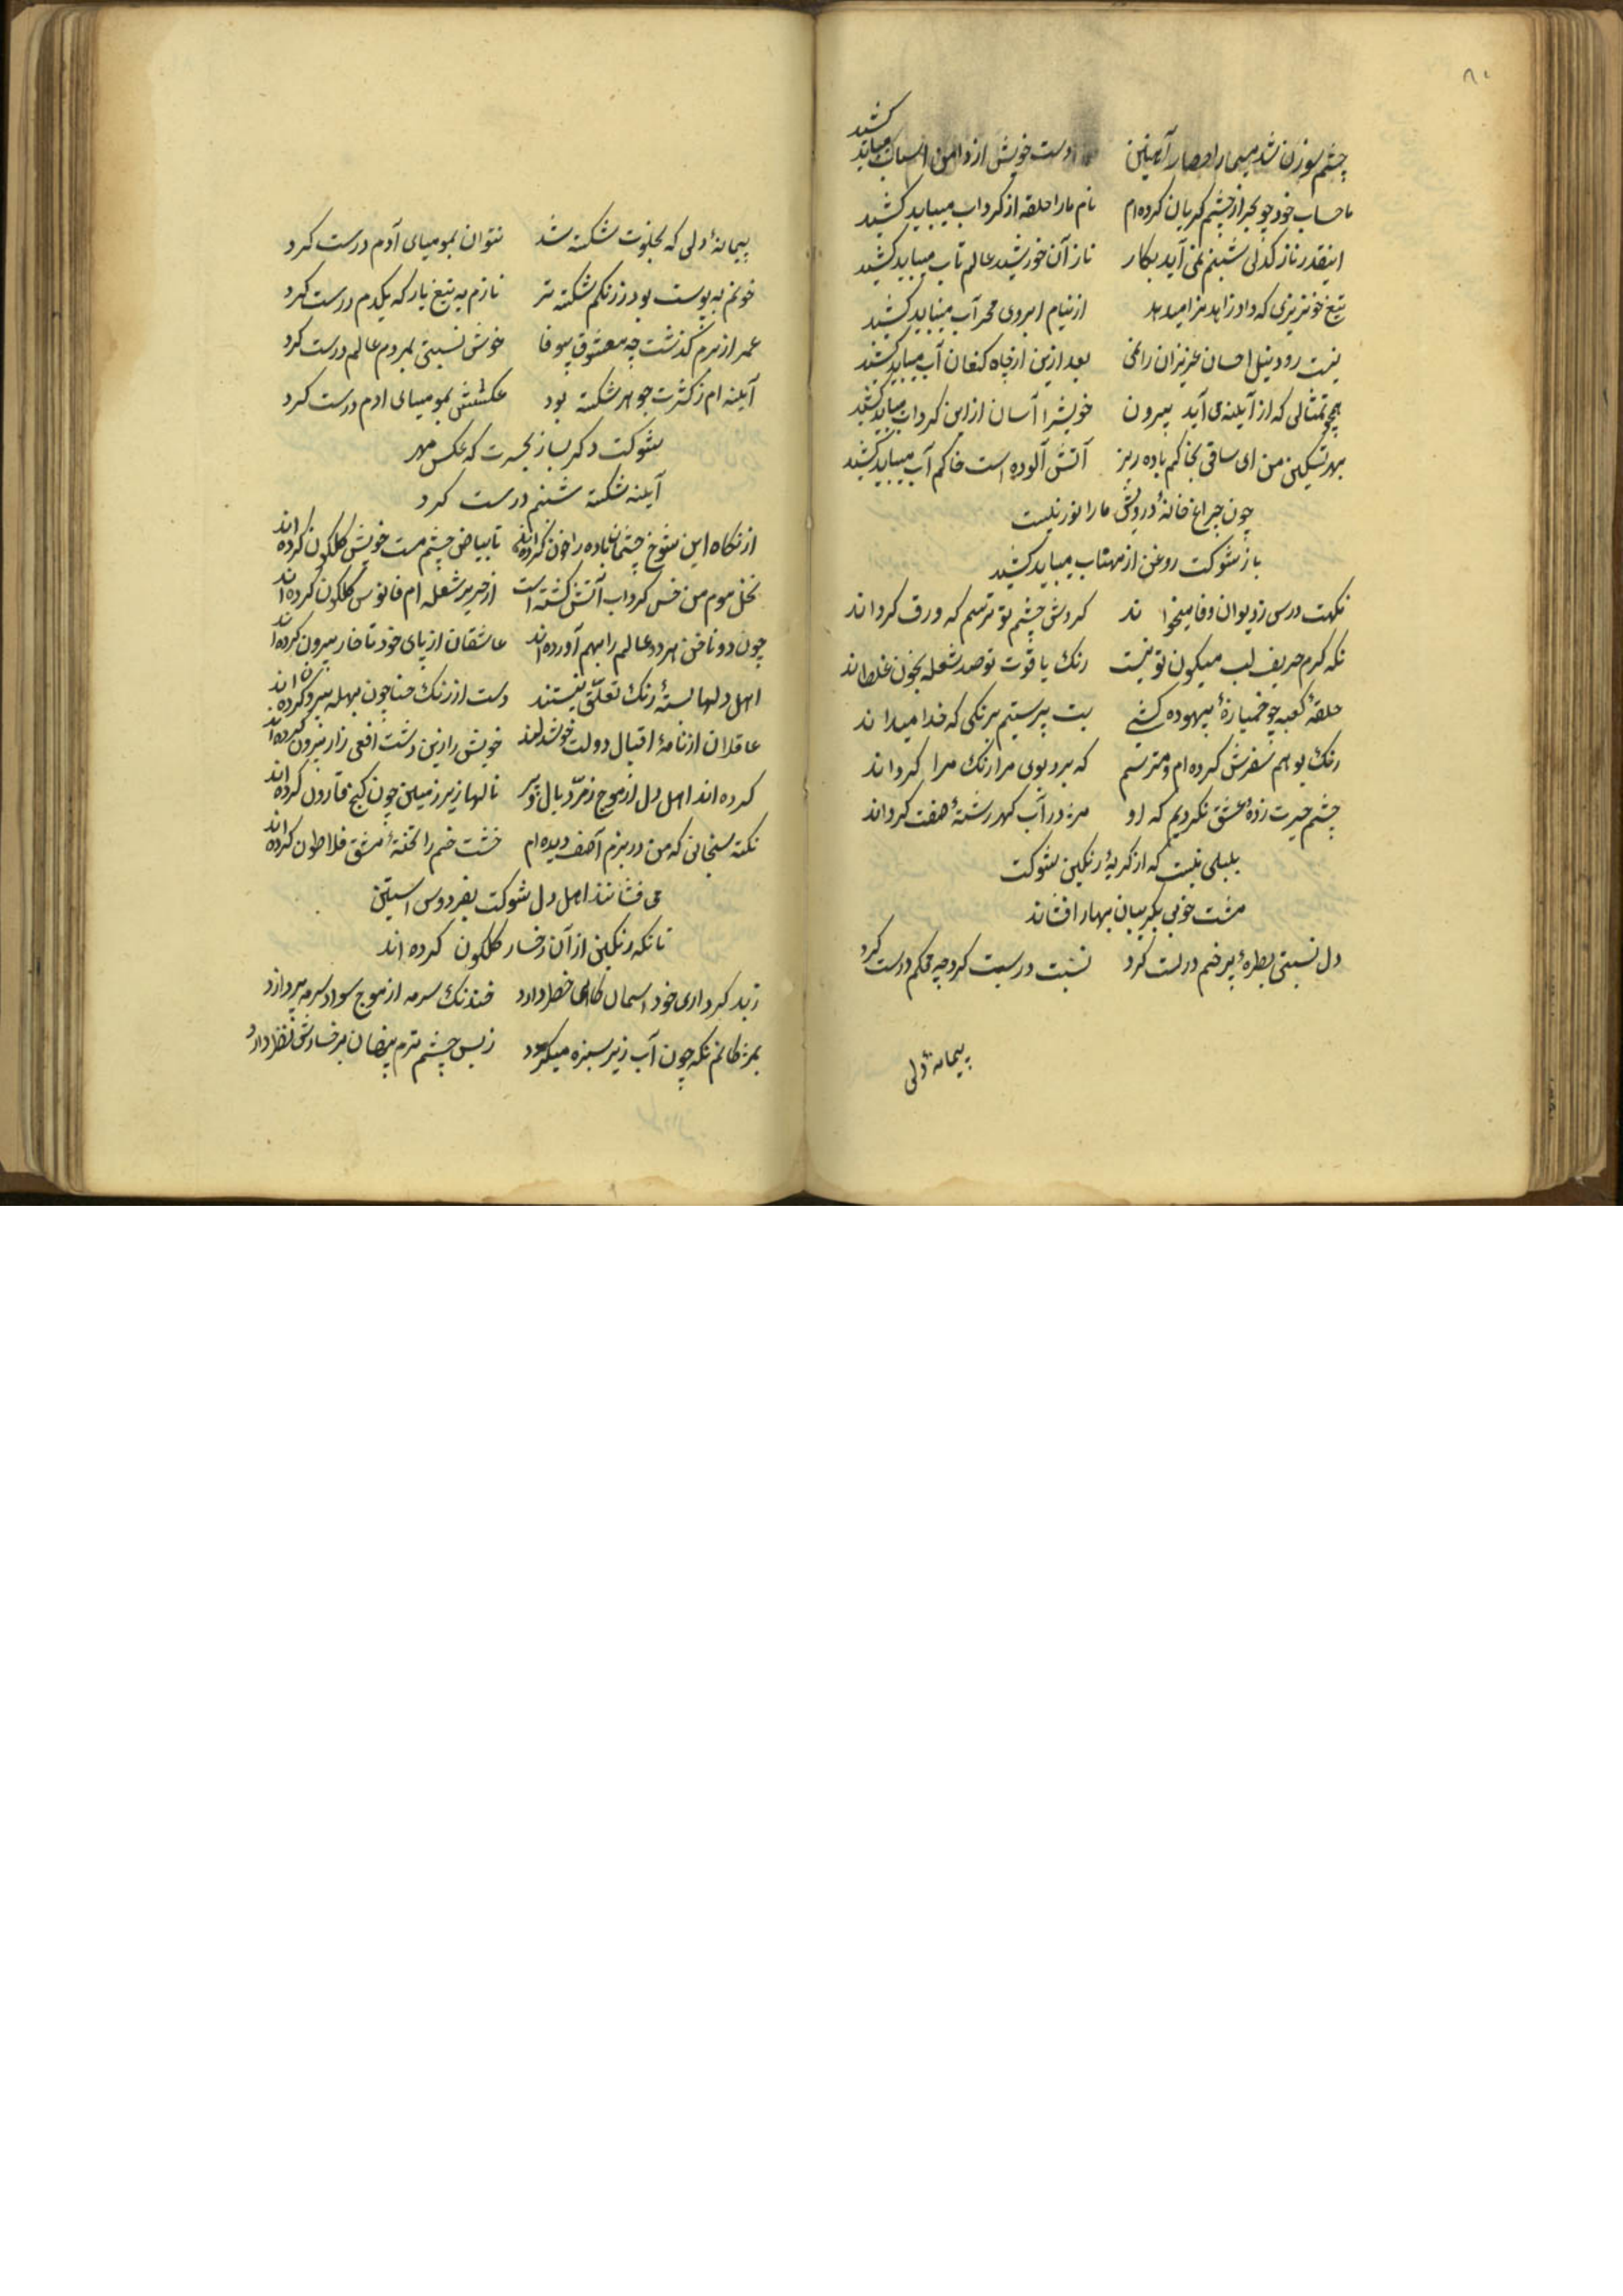 ۸۰
چشم سوزن شد مسیحا را حصار آهنین دست خویش از دامن اسباب میباید کشید
ما حساب خود چو بحر از چشم گریان کرده‌ام نام ما را حلقه از کرداب میباید کشید
اینقدر نازکدلی شبنم نمی آید بکار ناز آن خورشید عالم تاب میباید کشید
تیغ خونریزی که داد زاهد از نیام ابروی محراب میباید کشید
نیست رود نیل احسان عزیزان را نمی بعد ازین از چاه کنعان آب میباید کشید
همچو تمثالی که از آیینه می آید بیرون خویش را آسان ازین کرداب میباید کشید
بهر تسکین من ای ساقی بخاکم باده ریز آتش آلوده است خاکم آب میباید کشید
چون چراغ خانهٔ درویش ما را نور نیست
باز شوکت روغن از مهتاب میباید کشید
نکهت درس ز دیوان وفا میخواند کردش چشم تو ترسم که ورق کرداند
نکه کرم حریف لب میکون تو نیست رنک یاقوت تو صد شعله بخون غلطاند
حلقهٔ کعبه چو خمیازهٔ بیهوده کشی بت پرستیم برنکی که خدا میداند
رنک بو هم سفرش کرده‌ام و میترسم که برد بوی مرا رنک مرا کرداند
چشم حیرت زدهٔ عشق نکردیم که او مژه در آب کهر رشتهٔ هفت کرداند
بلبلی نیست که از کریهٔ رنکین شوکت
مشت خونی بکریبان بهار افشاند
دل نسبتی بطرهٔ پر خم درست کرد نسبت درست کرد چه محکم درست کرد
پیمانهٔ دلی
پیمانهٔ دلی که بخلوت شکسته شد نتوان بمومیای آدم درست کرد
خونم به پوست بود ز رنکم شکسته تر نازم به تیغ یار که یکدم درست کرد
عمر از برم کذشت چه معشوق بیوفا خوش نسبتی بمردم عالم درست کرد
آیینه ام ز کثرت جوهر شکسته بود عکسش بمومیای ادم درست کرد
شوکت دکر بساز بحسرت که عکس مهر
آیینه شکسته شبنم درست کرد
از نکاه این شوخ چشمان باده را خون کرده اند تا بیاض چشم مست خویش کلکون کرده اند
نخل موم من خس کرداب آتش کشته است از حریر شعله ام فانوس کلکون کرده اند
چون دو ناخن هر دو عالم را بهم آورده اند عاشقان از پای خود تا خار بیرون کرده اند
اهل دلها بستهٔ رنک تعلق نیستند دست از رنک حنا چون بهله بیرون کرده اند
عاقلان از نامهٔ اقبال دولت خوانده اند خویش را زین دشت افعی زار بیرون کرده اند
کرده اند اهل دل از موج زمرد بال و پر نالها زیر زمین چون کنج قارون کرده اند
نکته سنجانی که من در بزم آصف دیده ام خشت خم را تختهٔ مشق فلاطون کرده اند
می فشانند اهل دل شوکت بفردوس آستین
تا نکه رنکین از آن رخسار کلکون کرده اند
ز بد کرداری خود اسمان خطر دارد خدنک سرمه از موج سواد سرمه پر دارد
بمژکانم نکه چون آب زیر سبزه میکردد ز بس چشم ترم پنهان برخسارش نظر دارد